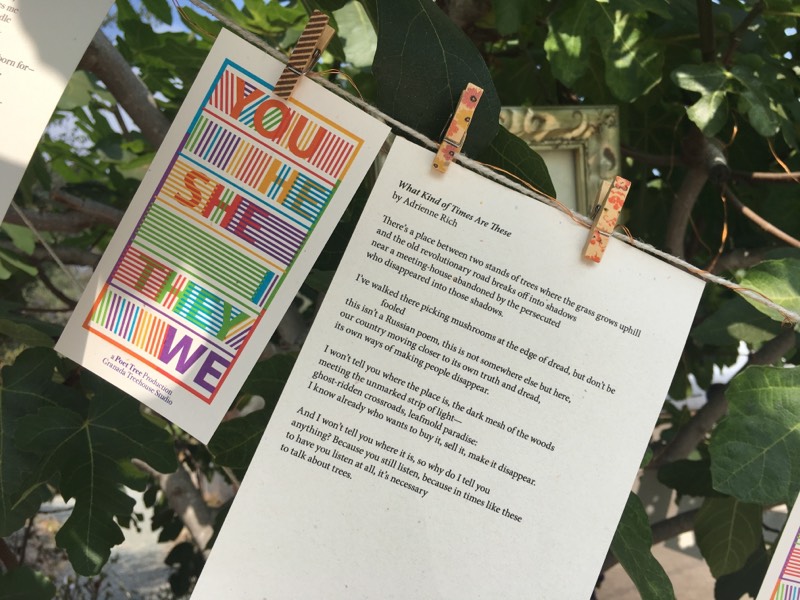 es me
dle
born for—
YOU
HE
SHE
THEY
WE
a Poet Tree Production
Granada Treehouse Studio
What Kind of Times Are These
by Adrienne Rich
There's a place between two stands of trees where the grass grows uphill
and the old revolutionary road breaks off into shadows
near a meeting-house abandoned by the persecuted
who disappeared into those shadows.
I've walked there picking mushrooms at the edge of dread, but don't be
fooled
this isn't a Russian poem, this is not somewhere else but here,
our country moving closer to its own truth and dread,
its own ways of making people disappear.
I won't tell you where the place is, the dark mesh of the woods
meeting the unmarked strip of light—
ghost-ridden crossroads, leafmold paradise:
I know already who wants to buy it, sell it, make it disappear.
And I won't tell you where it is, so why do I tell you
anything? Because you still listen, because in times like these
to have you listen at all, it's necessary
to talk about trees.